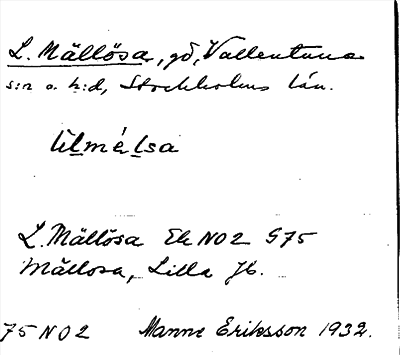 L. Mällösa, gd, Vallentuna
s:n o. h:d, Stockholms län.
lilmélsa
L. Mällösa Ek NO2 S75
Mällosa, Lilla Jb.
75 NO2 Manne Eriksson 1932.